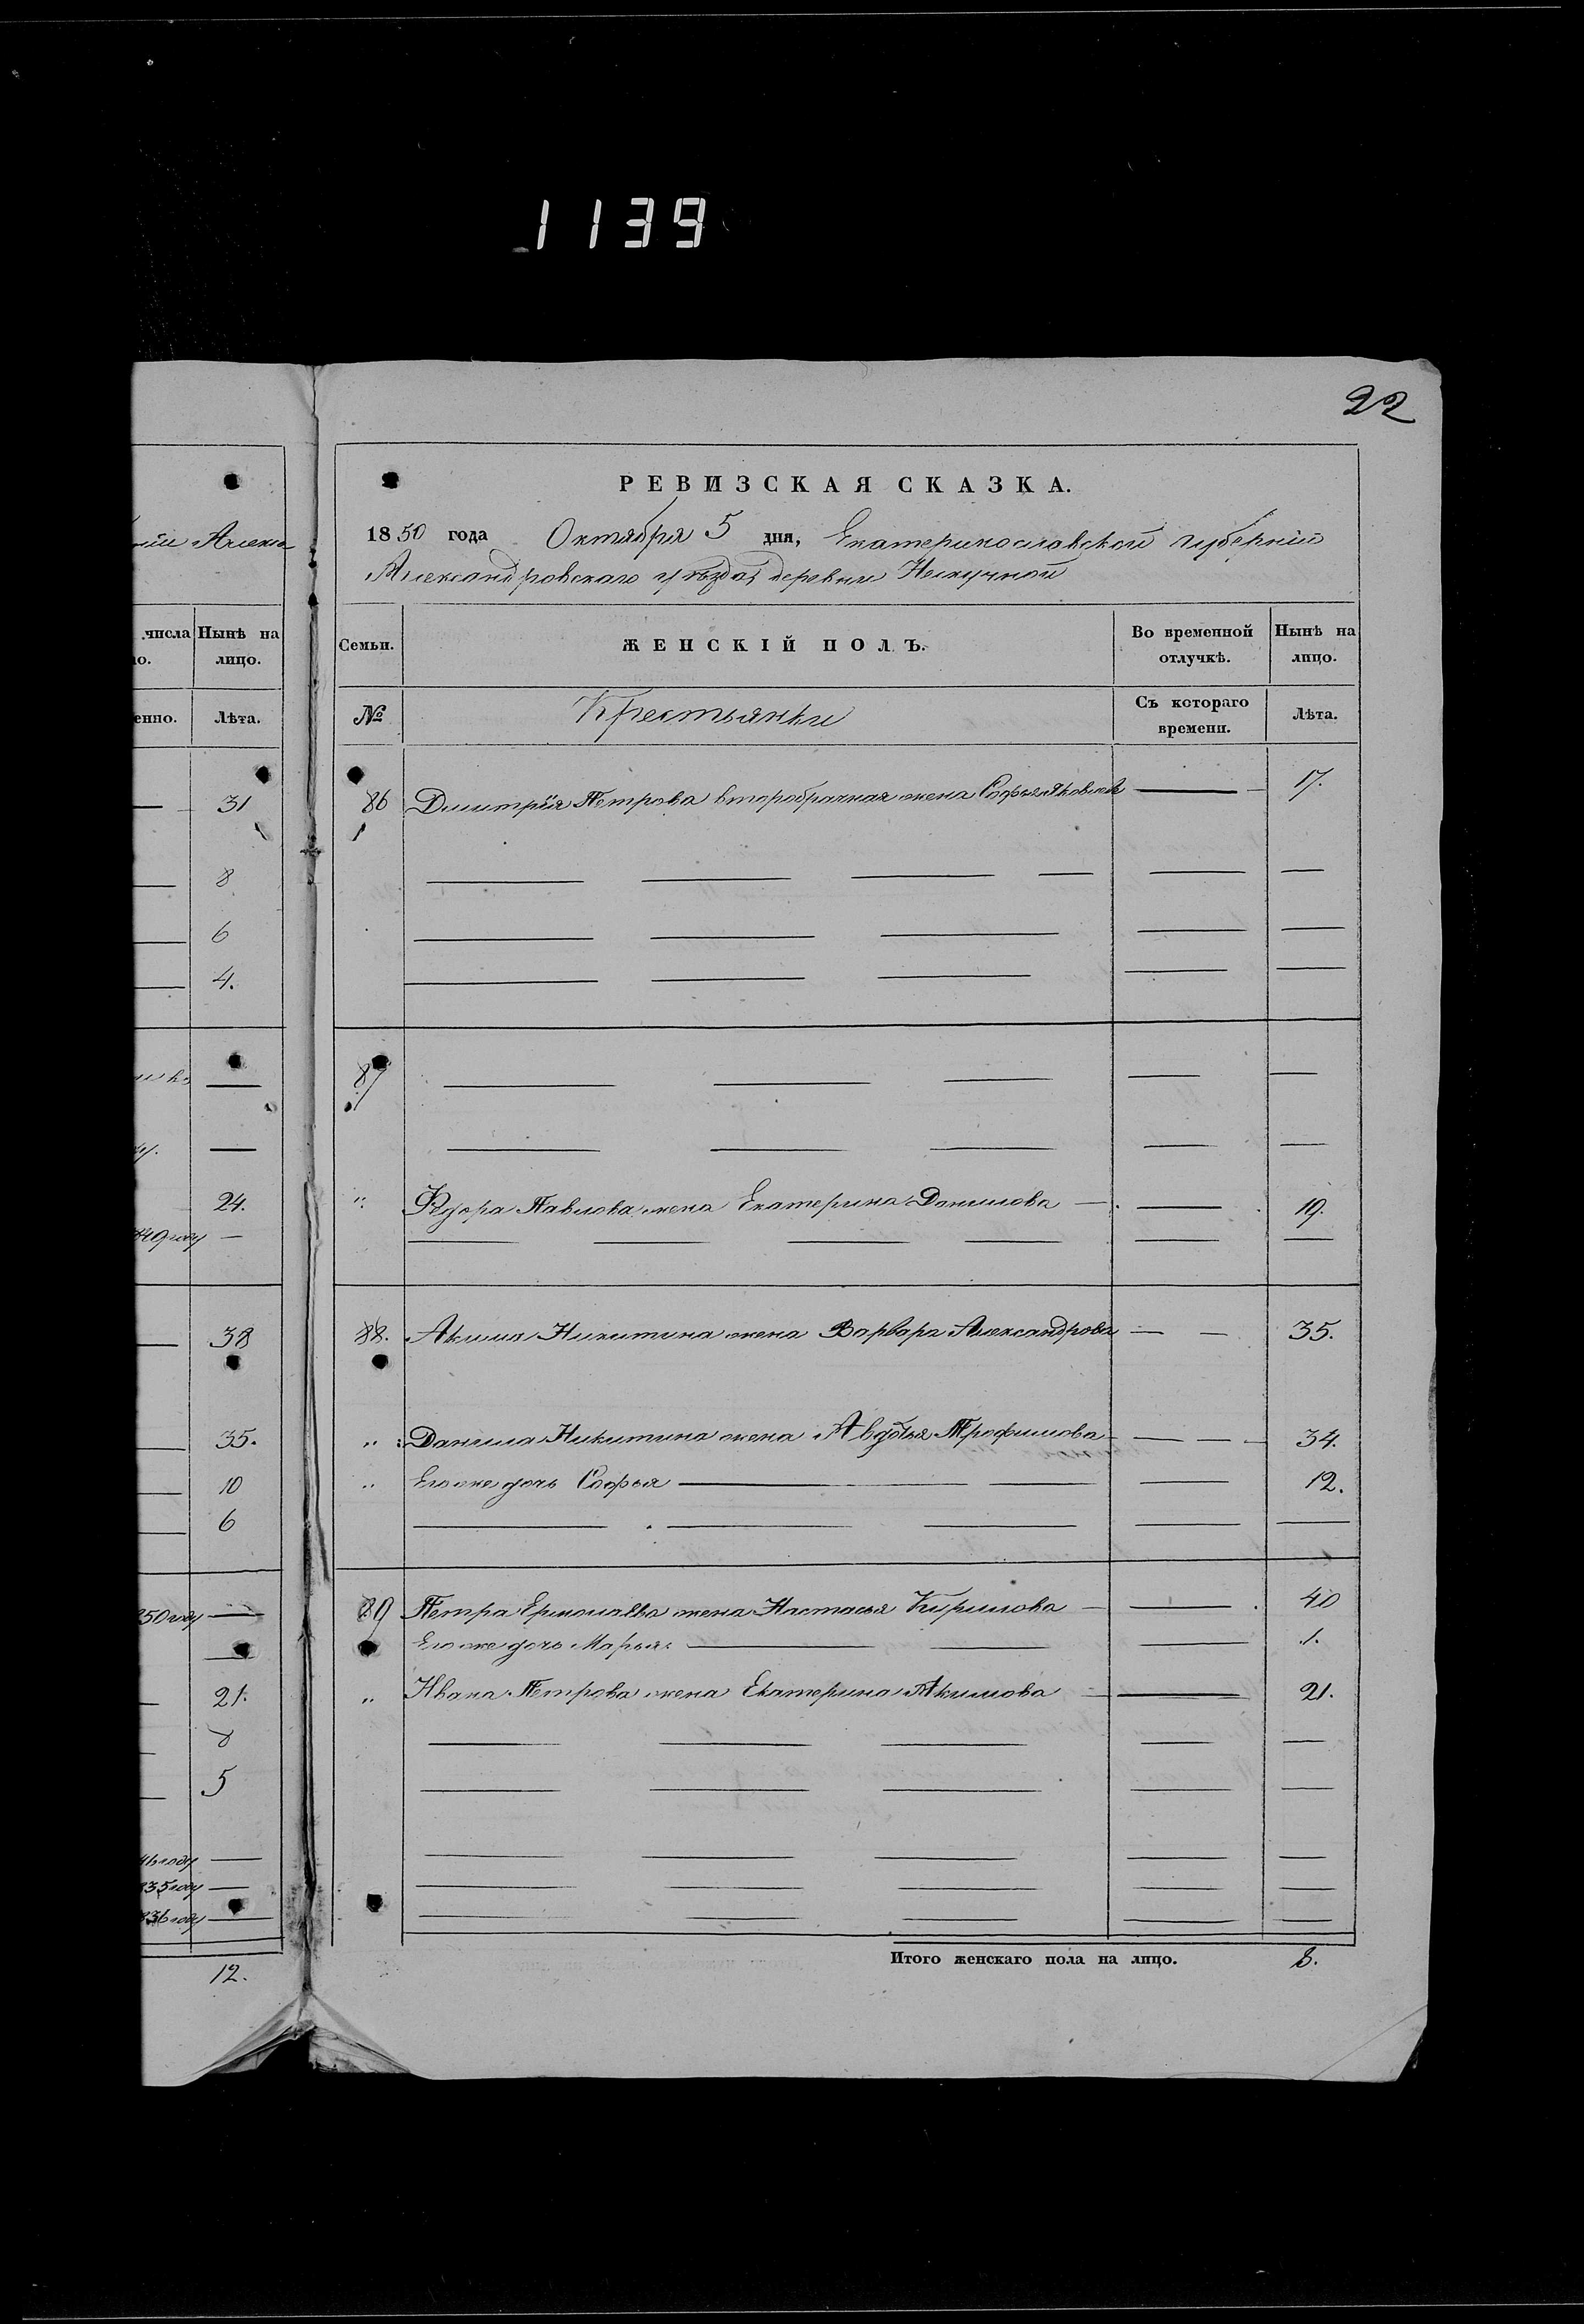 1139
22
РЕВИЗСКАЯ СКАЗКА.
1850 года Октября 5 дня, Екатеринославской губерніи
Александровскаго уѣзда, деревни Нескучной
Семьи. ЖЕНСКІЙ ПОЛЪ. Во временной отлучкѣ. Нынѣ на лицо.
№ Крестьянки Съ котораго времени. Лѣта.
86 Димитрія Петрова второбрачная жена Софья Яковлева — 17.
87
" Федора Павлова жена Екатерина Данилова — 19.
88. Акима Никитина жена Варвара Александрова — — 35.
" Данила Никитина жена Авдотья Трофимова — — 34.
" Его же дочь Софья — 12.
89 Петра Ермолаева жена Настасья Кирилова — 40
Его же дочь Марья — 1.
" Ивана Петрова жена Екатерина Акимова — 21.
Итого женскаго пола на лицо. 8.
ніи Алекса
числа Нынѣ на
о. лицо.
енно. Лѣта.
31
8
6
4.
24.
849 году —
38
35.
10
6
850 году —
21.
8
5
46 году —
835 году —
836 году —
12.